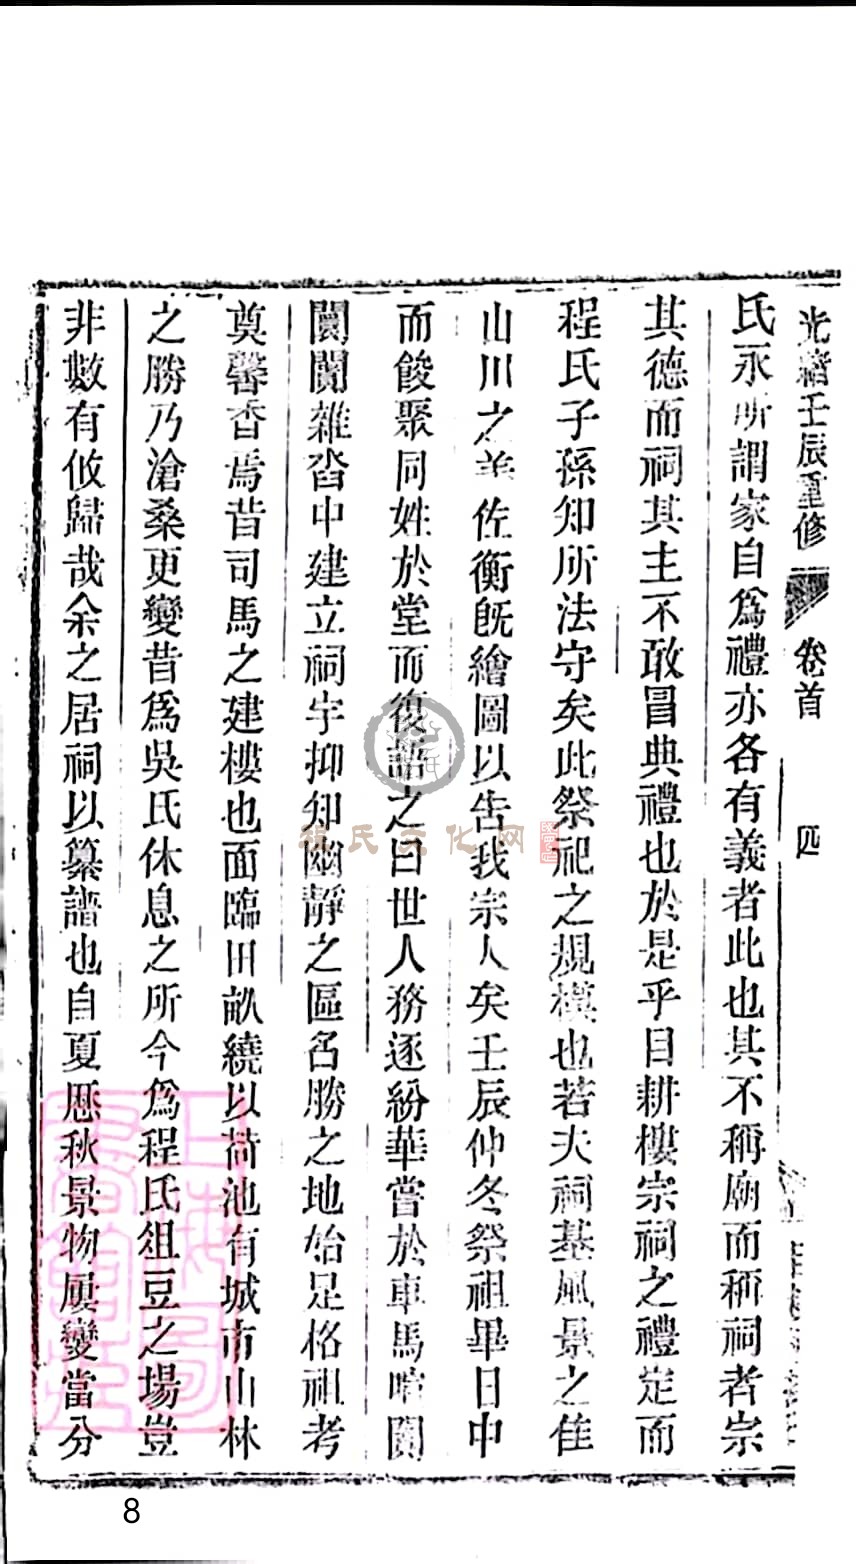 光緒壬辰重修
卷首
四
氏永所謂家自爲禮亦各有義者此也其不稱廟而稱祠者宗
其德而祠其主不敢冒典禮也於是乎目耕樓宗祠之禮定而
程氏子孫知所法守矣此祭祀之規模也若夫祠基風景之佳
山川之美佐衡旣繪圖以告我宗人矣壬辰仲冬祭祖畢日中
而餕聚同姓於堂而復語之曰世人務逐紛華嘗於車馬喧闐
闤闠雜沓中建立祠宇抑知幽靜之區名勝之地始足格祖考
奠馨香焉昔司馬之建樓也面臨田畝繞以荷池有城市山林
之勝乃滄桑更變昔爲吳氏休息之所今爲程氏俎豆之場豈
非數有攸歸哉余之居祠以纂譜也自夏歷秋景物屢變當分
氏文化网
上海圖書館藏
8